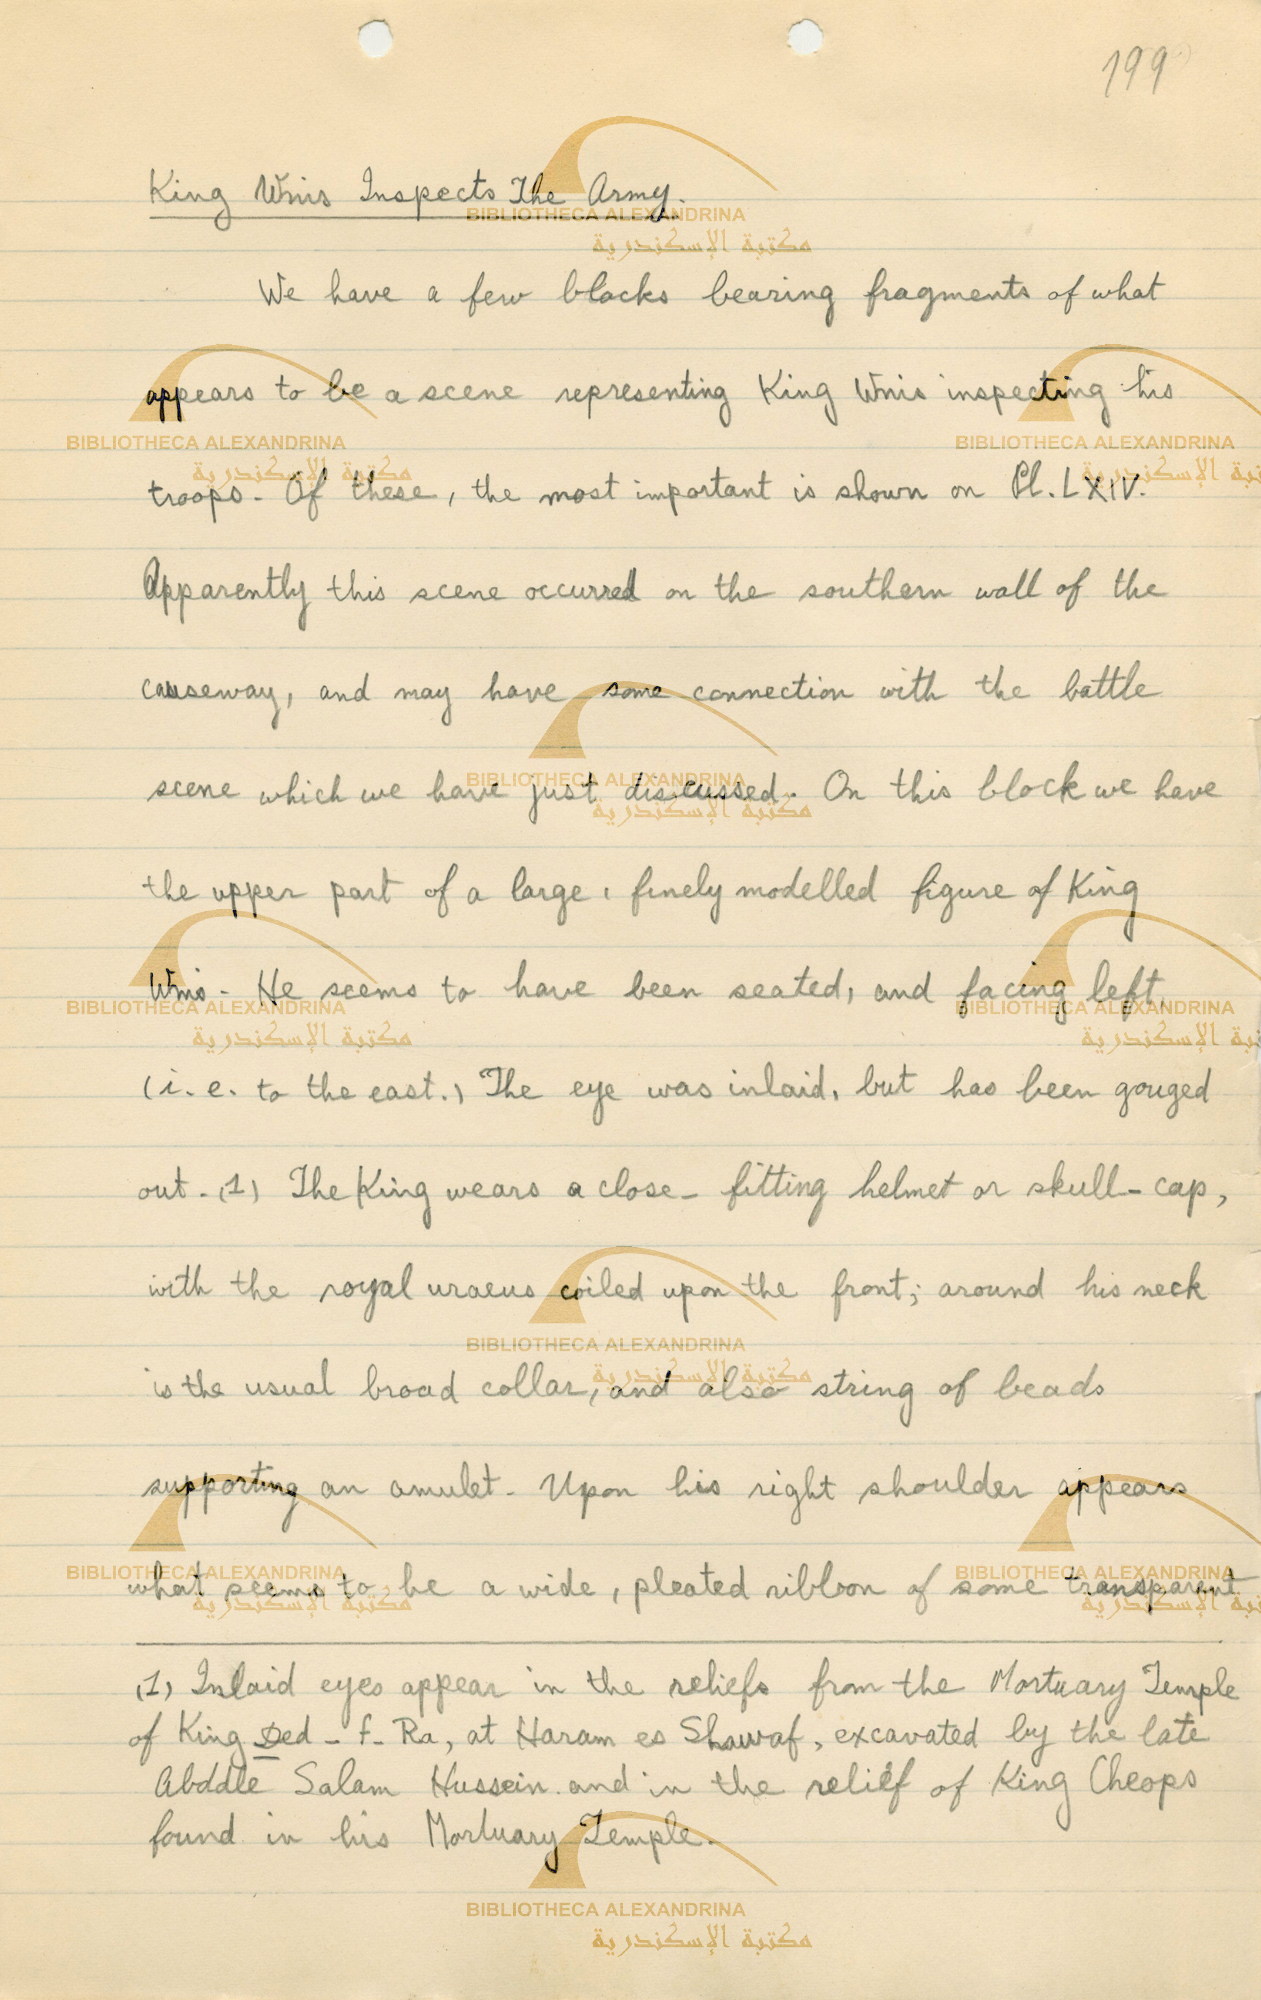 199
King Wnis Inspects The Army.
We have a few blocks bearing fragments of what
appears to be a scene representing King Wnis inspecting his
troops. Of these, the most important is shown on Pl. LXIV.
Apparently this scene occurred on the southern wall of the
causeway, and may have some connection with the battle
scene which we have just discussed. On this block we have
the upper part of a large, finely modelled figure of King
Wnis. He seems to have been seated, and facing left,
(i.e. to the east.) The eye was inlaid, but has been gouged
out. (1) The King wears a close-fitting helmet or skull-cap,
with the royal uraeus coiled upon the front; around his neck
is the usual broad collar, and also string of beads
supporting an amulet. Upon his right shoulder appears
what seems to be a wide, pleated ribbon of some transparent
(1) Inlaid eyes appear in the reliefs from the Mortuary Temple
of King Ded-f-Ra, at Haram es Shawaf, excavated by the late
Abddle Salam Hussein and in the relief of King Cheops
found in his Mortuary Temple.
BIBLIOTHECA ALEXANDRINA
مكتبة الإسكندرية